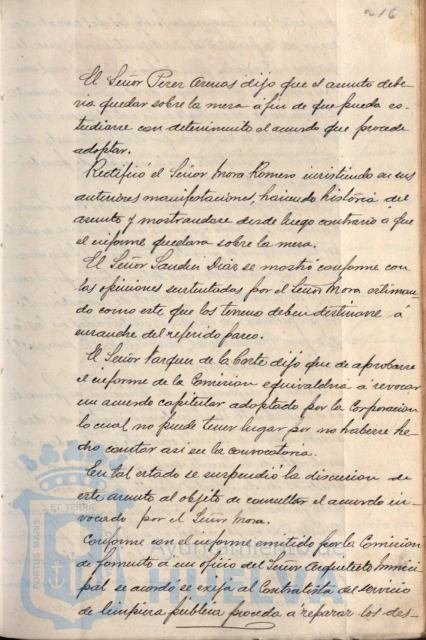 216
El Señor Perez Arenas dijo que el asunto debe-
ria quedar sobre la mesa á fin de que pueda es-
tudiarse con detenimiento el acuerdo que procede
adoptar.
Rectificó el Señor Mora Romero insistiendo en sus
anteriores manifestaciones, haciendo historia del
asunto y mostrandose desde luego contrario a que
el informe quedara sobre la mesa.
El Señor Sanchez Diaz se mostró conforme con
las opiniones sustentadas por el Señor Mora estiman-
do como este que los terrenos deben destinarse á
ensanche del referido paseo.
El Señor Vazquez de la Corte dijo que de aprobarse
el informe de la Comision equivaldria á revocar
un acuerdo capitular adoptado por la Corporacion
lo cual no puede tener lugar por no haberse he-
cho constar asi en la convocatoria.
En tal estado se suspendió la discusion de
este asunto al objeto de consultar el acuerdo in-
vocado por el Señor Mora.
Conforme con el informe emitido por la Comision
de Fomento a un oficio del Señor Arquitecto Munici-
pal se acordó se exija al Contratista del servicio
de limpieza publica proceda á reparar los des-
PORTUS MARIS
ET TERRÆ
Ayuntamiento de
HUELVA